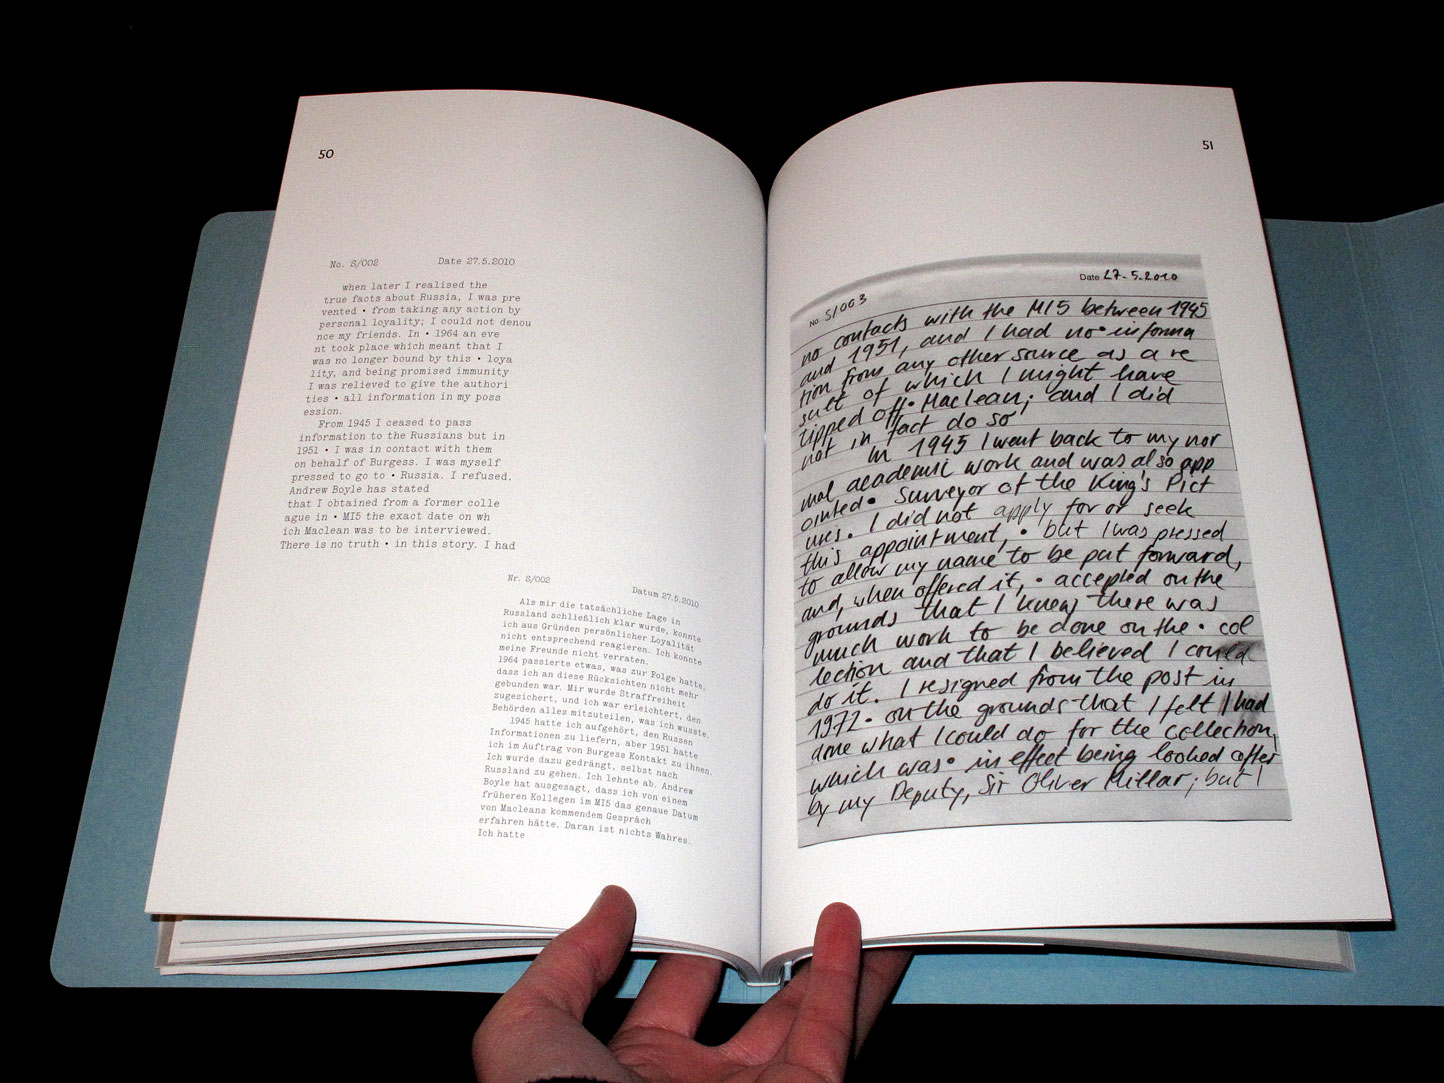 50
No. S/002 Date 27.5.2010
when later I realised the
true facts about Russia, I was pre
vented • from taking any action by
personal loyality; I could not denou
nce my friends. In • 1964 an eve
nt took place which meant that I
was no longer bound by this • loya
lity, and being promised immunity
I was relieved to give the authori
ties • all information in my poss
ession.
From 1945 I ceased to pass
information to the Russians but in
1951 • I was in contact with them
on behalf of Burgess. I was myself
pressed to go to • Russia. I refused.
Andrew Boyle has stated
that I obtained from a former colle
ague in • MI5 the exact date on wh
ich Maclean was to be interviewed.
There is no truth • in this story. I had
Nr. S/002 Datum 27.5.2010
Als mir die tatsächliche Lage in
Russland schließlich klar wurde, konnte
ich aus Gründen persönlicher Loyalität
nicht entsprechend reagieren. Ich konnte
meine Freunde nicht verraten.
1964 passierte etwas, was zur Folge hatte,
dass ich an diese Rücksichten nicht mehr
gebunden war. Mir wurde Straffreiheit
zugesichert, und ich war erleichtert, den
Behörden alles mitzuteilen, was ich wusste.
1945 hatte ich aufgehört, den Russen
Informationen zu liefern, aber 1951 hatte
ich im Auftrag von Burgess Kontakt zu ihnen.
Ich wurde dazu gedrängt, selbst nach
Russland zu gehen. Ich lehnte ab. Andrew
Boyle hat ausgesagt, dass ich von einem
früheren Kollegen im MI5 das genaue Datum
von Macleans kommendem Gespräch
erfahren hätte. Daran ist nichts Wahres.
Ich hatte
51
Date 27-5-2010
No. S/003
no contacts with the MI5 between 1945
and 1951, and I had no • informa
tion from any other source as a re
sult of which I might have
tipped off • Maclean; and I did
not in fact do so
In 1945 I went back to my nor
mal academic work and was also app
ointed • Surveyor of the King's Pict
ures. I did not apply for or seek
this appointment, • but I was pressed
to allow my name to be put forward,
and, when offered it, • accepted on the
grounds that I knew there was
much work to be done on the • col
lection and that I believed I could
do it. I resigned from the post in
1972 • on the grounds that I felt I had
done what I could do for the collection,
which was • in effect being looked after
by my Deputy, Sir Oliver Millar; but I